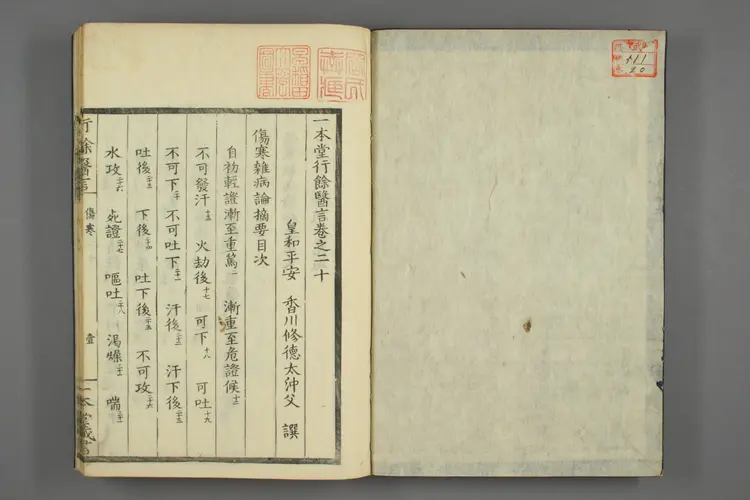 一本堂行餘醫言卷之二十
皇和平安 香川修德太冲父 譔
傷寒雜病論摘要目次
自初輕證漸至重篤一 漸重至危證候十二
不可發汗十五 火劫後十七 可下十八 可吐十九
不可下二十 不可吐下二十一 汗後二十二 汗下後二十三
吐後二十三 下後二十四 吐下後二十五 不可攻二十六
水攻二十六 死證二十七 嘔吐二十八 渇燥三十一 喘三十二
行餘醫言
傷寒
壹
一本堂藏